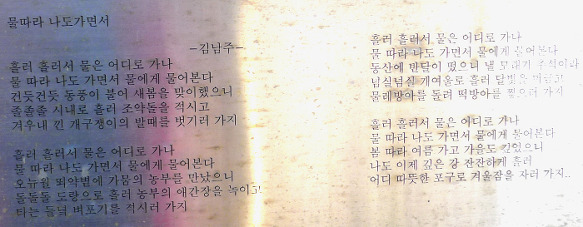 물따라 나도가면서
-김남주-
흘러 흘러서 물은 어디로 가나
물 따라 나도 가면서 물에게 물어본다
건듯건듯 동풍이 불어 새봄을 맞이했으니
졸졸졸 시내로 흘러 조약돌을 적시고
겨우내 낀 개구쟁이의 발때를 벗기러 가지
흘러 흘러서 물은 어디로 가나
물 따라 나도 가면서 물에게 물어본다
오뉴월 뙤약볕에 가뭄의 농부를 만났으니
돌돌돌 도랑으로 흘러 농부의 애간장을 녹이고
타는 들녘 벼포기를 적시러 가지
흘러 흘러서 물은 어디로 가나
물 따라 나도 가면서 물에게 물어본다
동산에 반달이 떴으니 낼 모레가 추석이라
넘실넘실 개여울로 흘러 달빛을 머금고
물레방아를 돌려 떡방아를 찧으러 가지
흘러 흘러서 물은 어디로 가나
물 따라 나도 가면서 물에게 물어본다
봄 따라 여름 가고 가을도 깊었으니
나도 이제 깊은 강 잔잔하게 흘러
어디 따뜻한 포구로 겨울잠을 자러 가지..